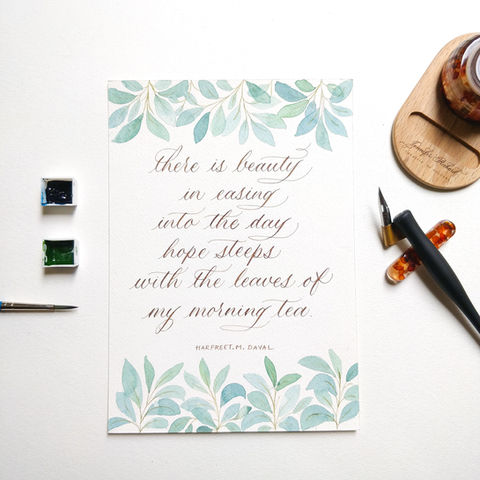 there is beauty
in easing
into the day
hope steeps
with the leaves of
my morning tea.
HARPREET. M. DAYAL